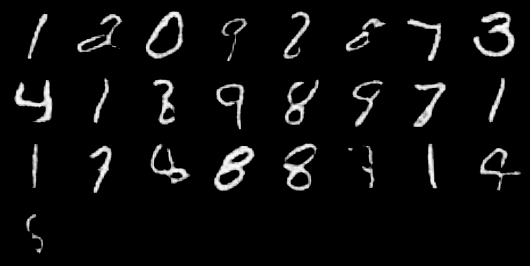 1 2 0 9 2 8 7 3
4 1 3 9 8 9 7 1
1 7 4 8 8 7 1 4
5